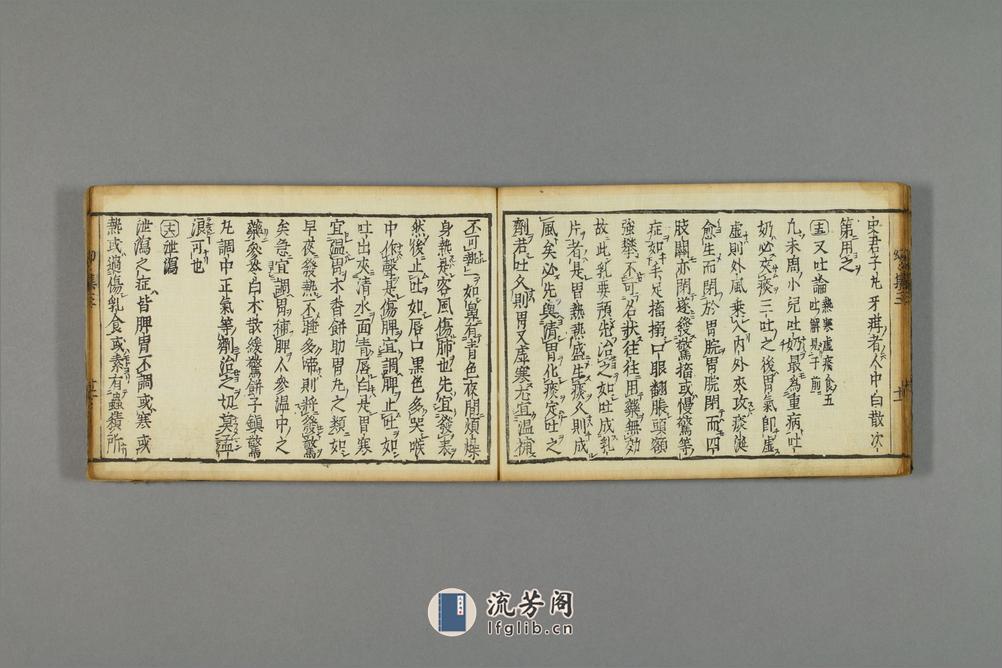 史君子丸牙疳者人中白散次
第用之
又吐論 熱寒虛痰食五吐解見于前
凡未周小兒吐奶最為重病吐
奶必夾痰三吐之後胃氣即虛
虛則外風乘入內外夾攻痰涎
愈生而閉於胃脘胃脘閉而四
肢關亦閉遂發驚搐或慢驚等
症如手足搐搦口眼翻脹頭額
強攀不可名狀往往用藥無効
故此乳要預先治之如吐成乳
片者是胃熱熱盛生痰久則成
風矣必先與清胃化痰定吐之
劑若吐久則胃又虛寒尤宜溫補
不可執一如鼻有青色夜間煩燥
身熱是客風傷肺也先宜發表
然後止吐如唇口黑色多哭喉
中作聲是傷脾宜調脾止吐如
吐出夾清水面青唇白是胃寒
宜溫胃木香餅助胃丸之類如
早夜發熱不睡多啼則將發驚
矣急宜調胃補脾人參溫中之
藥參苓白朮散緩驚餅子鎮驚
丸調中正氣等劑治之切莫孟
浪可也
泄瀉
泄瀉之症皆脾胃不調或寒或
熱或過傷乳食或素有蟲積所
流芳阁
lfglib.cn